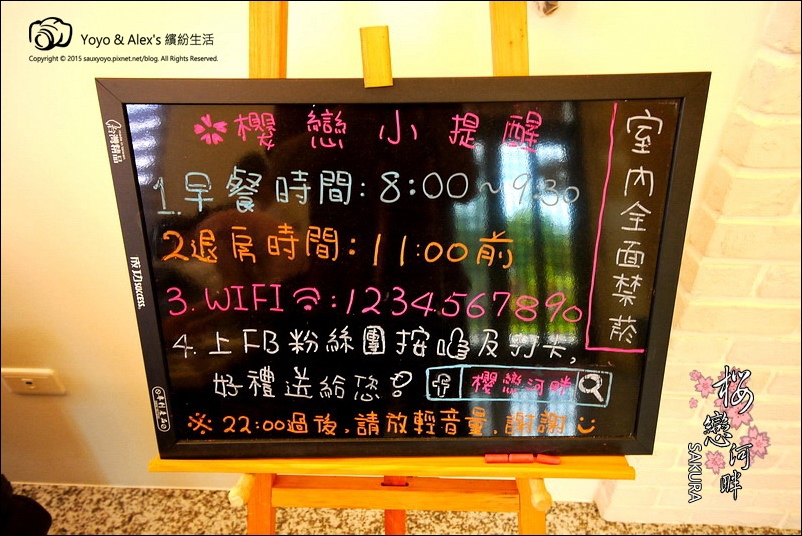 Yoyo & Alex's 繽紛生活
Copyright © 2015 sauxyoyo.pixnet.net/blog. All Rights Reserved.
櫻戀小提醒
1.早餐時間:8:00~9:30
2.退房時間:11:00前
3.WIFI:1234567890
4.上FB粉絲團按讚及打卡,
好禮送給您? 櫻戀河畔
※22:00過後,請放輕音量,謝謝
室內全面禁菸
SUCCESS
桜戀河畔
SAKURA